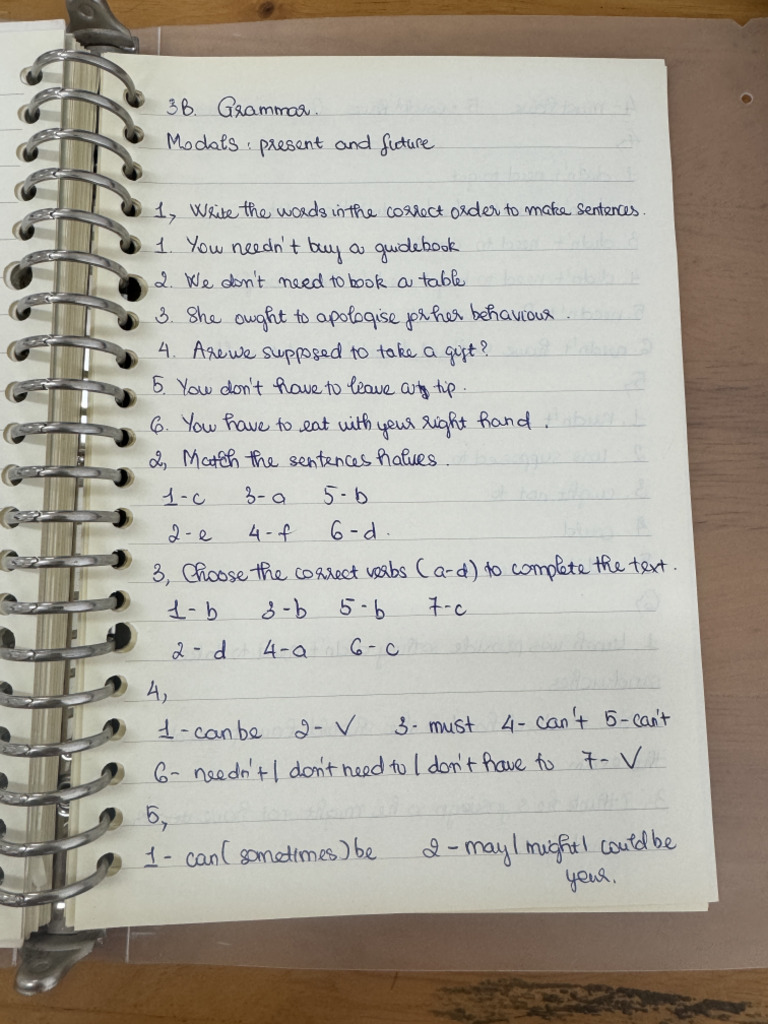 3B. Grammar.
Modals: present and future
1, Write the words in the correct order to make sentences.
1. You needn't buy a guidebook
2. We don't need to book a table
3. She ought to apologise for her behaviour.
4. Are we supposed to take a gift?
5. You don't have to leave a tip.
6. You have to eat with your right hand.
2, Match the sentences halves.
1-c 3-a 5-b
2-e 4-f 6-d.
3, Choose the correct verbs (a-d) to complete the text.
1-b 3-b 5-b 7-c
2-d 4-a 6-c
4,
1-can be 2-✓ 3-must 4-can't 5-can't
6- needn't/ don't need to/ don't have to 7-✓
5,
1- can (sometimes) be 2-may/might/ could be
your.